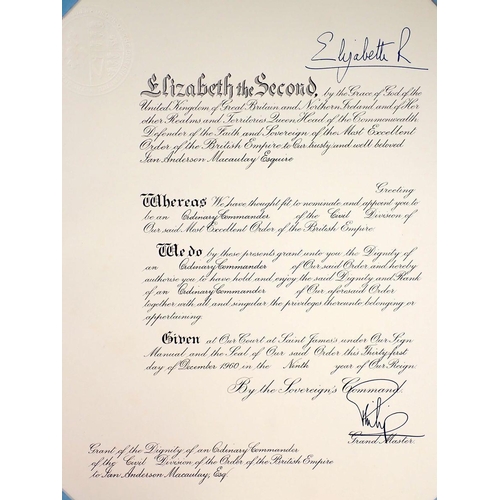 Elizabeth R
Elizabeth the Second, by the Grace of God of the
United Kingdom of Great Britain and Northern Ireland and of Her
other Realms and Territories Queen, Head of the Commonwealth,
Defender of the Faith and Sovereign of the Most Excellent
Order of the British Empire to Our trusty and well beloved
Ian Anderson Macaulay Esquire
Greeting
Whereas We have thought fit to nominate and appoint you to
be an Ordinary Commander of the Civil Division of
Our said Most Excellent Order of the British Empire
We do by these presents grant unto you the Dignity of
an Ordinary Commander of Our said Order and hereby
authorise you to have hold and enjoy the said Dignity and Rank
of an Ordinary Commander of Our aforesaid Order
together with all and singular the privileges thereunto belonging or
appertaining.
Given at Our Court at Saint James's under Our Sign
Manual and the Seal of Our said Order this Thirty-first
day of December 1960 in the Ninth year of Our Reign.
By the Sovereign's Command.
Philip
Grand Master.
Grant of the Dignity of an Ordinary Commander
of the Civil Division of the Order of the British Empire
to Ian Anderson Macaulay, Esq.